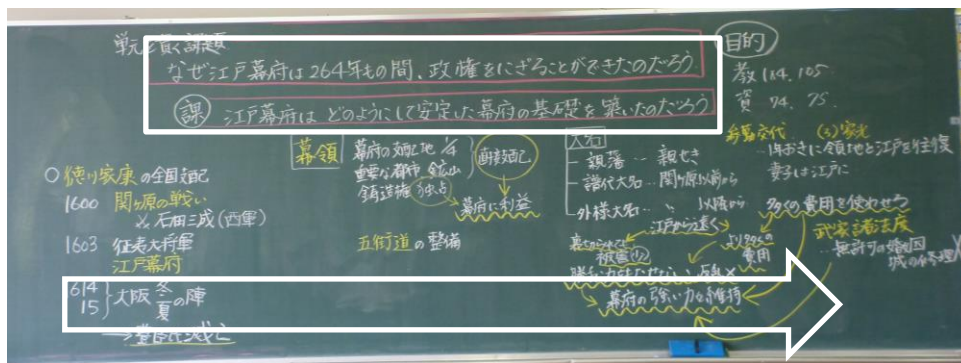 単元を貫く課題
なぜ江戸幕府は264年もの間、政権をにぎることができたのだろう
課 江戸幕府は どのようにして安定した幕府の基礎を築いたのだろう
目的
教 104.105
資 74. 75.
○徳川家康の全国支配
1600 関ヶ原の戦い
× 石田三成(西軍)
1603 征夷大将軍
江戸幕府
1614
15 大阪 冬・夏の陣
→豊臣氏滅亡
幕領
幕府の支配地 1/4
重要な都市 鉱山
貨幣鋳造権 独占
直接支配
幕府に利益
五街道の整備
大名
親藩‥親せき
譜代大名‥関ヶ原以前から
外様大名‥〃 以後から
江戸から遠く
被害少
より多くの
費用
幕府の強い力を維持
参勤交代 (3)家光
1年おきに領地と江戸を往復
妻子は江戸に
多くの費用を使わせる
武家諸法度
‥無許可の婚因
城の修理×